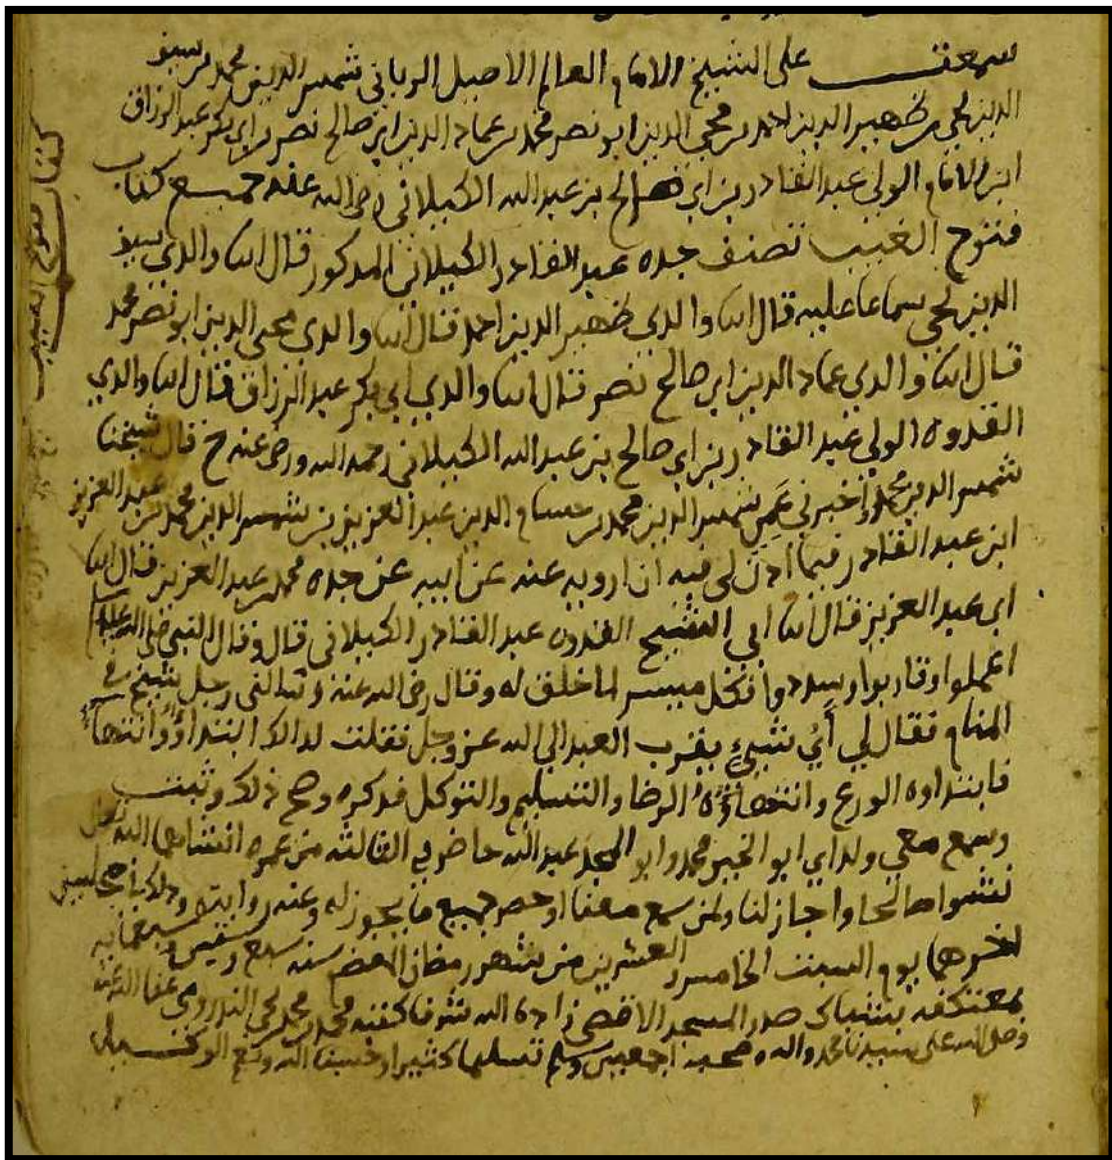 سمعت على الشيخ الامام العالم الاصيل الرباني شمس الدين محمد بن سيف
الدين يحيى بن ظهير الدين احمد بن محيي الدين ابو نصر محمد بن عماد الدين ابي صالح نصر بن ابي بكر عبد الرزاق
ابن الامام الولي عبد القادر بن ابي صالح بن عبد الله الكيلاني رضي الله عنه جميع كتاب
فتوح الغيب تصنف جده عبد القادر الكيلاني المذكور قال انا والدي سيف
الدين يحيى سماعا عليه قال انا والدي ظهير الدين احمد قال انا والدي محيي الدين ابو نصر محمد
قال انا والدي عماد الدين ابي صالح نصر قال انا والدي ابي بكر عبد الرزاق قال انا والدي
القدوه الولي عبد القادر بن ابي صالح بن عبد الله الكيلاني رحمه الله ورضي عنه ح قال شيخنا
شمس الدين محمد واخبرني عمي شمس الدين محمد بن حسام الدين عبد العزيز بن شمس الدين محمد بن عبد العزيز
ابن عبد القادر فيما اذن لي فيه ان ارويه عنه عن ابيه عن جده محمد بن عبد العزيز قال انا
ابي عبد العزيز قال انا ابي الشيخ القدوه عبد القادر الكيلاني قال وقال النبي صلى الله عليه وسلم
اعملوا وقاربوا وسددوا فكل ميسر لما خلق له وقال رضي الله عنه وسالني رجل شيخ في
المنام فقال لي أي شيء يقرب العبد الى الله عز وجل فقلت لذالك ابتداؤ وانتها
فابتداوه الورع وانتهاؤه الرضا والتسليم والتوكل فذكره وصح ذلك وثبت
وسمع معي ولداي ابو الخير محمد وابو المجد عبد الله حاضر في الثالثه من عمره انشاهما الله تعالى
نشوا صالحا واجاز لنا ولمن سمع معنا او حضر جميع ما يجوز له وعنه روايته وذلك في مجلسين
اخرهما يوم السبت الخامس والعشرين من شهر رمضان المعظم سنه سبع وستين وسبعمايه
بمعتكفه بشباك صدر المسجد الاقصى زاده الله شرفا كتبه محمد بن محمد بن يحيى الندرومي عفا الله عنه
وصلى الله على سيدنا محمد واله وصحبه اجمعين وسلم تسليما كثيرا وحسبنا الله ونعم الوكيل
كتاب فتوح الغيب